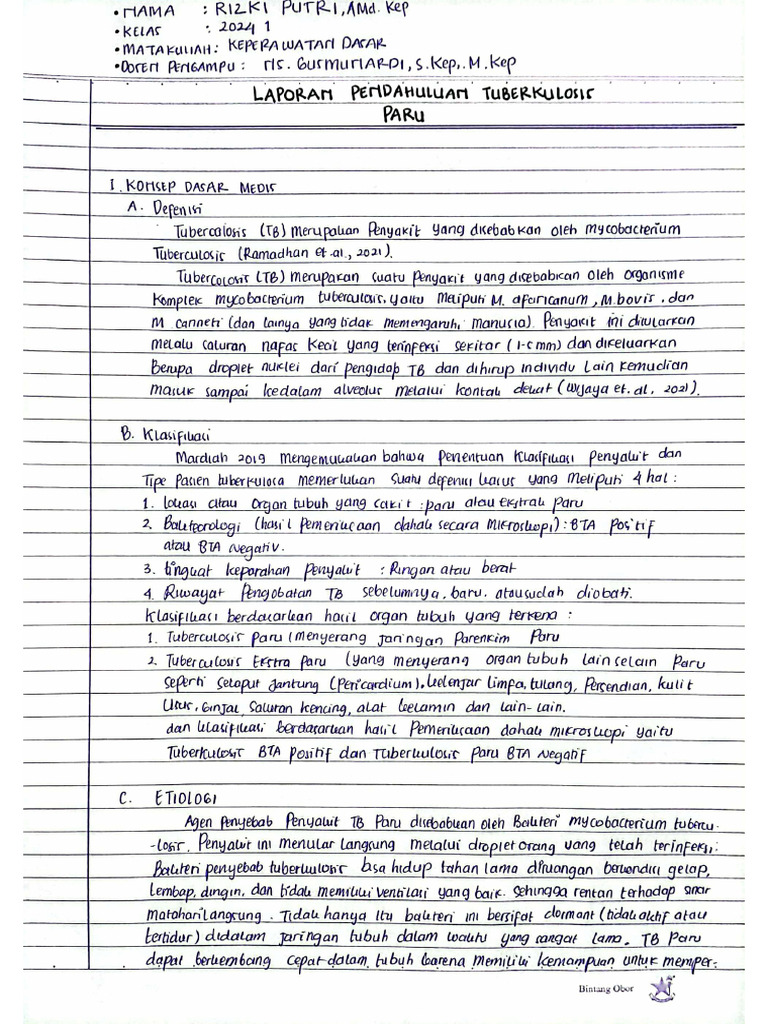 • NAMA : RIZKI PUTRI, AMd. Kep
• KELAS : 2024 1
• MATAKULIAH : KEPERAWATAN DASAR
• DOSEN PENGAMPU : NS. GUSMUNARDI, S.Kep,. M.Kep
LAPORAN PENDAHULUAN TUBERKULOSIS
PARU
I. KONSEP DASAR MEDIS
A. Defenisi
Tubercolosis (TB) merupakan Penyakit yang disebabkan oleh mycobacterium
Tuberculosis (Ramadhan et.al., 2021).
Tubercolosis (TB) merupakan suatu penyakit yang disebabkan oleh organisme
Komplek mycobacterium tuberculosis, yaitu meliputi M. afaricanum, M.bovis, dan
M canneti (dan lainya yang tidak memengaruhi manusia). Penyakit ini ditularkan
melalu saluran nafas kecil yang terinfeksi sekitar (1-5 mm) dan dikeluarkan
Berupa droplet nuklei dari pengidap TB dan dihirup individu lain kemudian
masuk sampai kedalam alveolus melalui kontak dekat (Wijaya et.al, 2021).
B. Klasifikasi
Mardiah 2019 mengemukakan bahwa penentuan klasifikasi penyakit dan
Tipe pasien tuberkulosa memerlukan suatu defenisi kasus yang meliputi 4 hal :
1. Lokasi atau organ tubuh yang sakit : paru atau ekstrak paru
2. Bakteorologi (hasil pemeriksaan dahak secara mikroskopi) : BTA positif
atau BTA negativ.
3. tingkat keparahan penyakit : Ringan atau berat
4. Riwayat pengobatan TB sebelumnya, baru. atau sudah diobati.
Klasifikasi berdasarkan hasil organ tubuh yang terkena :
1. Tuberculosis paru (menyerang jaringan parenkim paru
2. Tuberculosis Ekstra paru (yang menyerang organ tubuh lain selain paru
seperti selaput jantung (pericardium), kelenjar limpa, tulang, persendian, kulit
Usus, Ginjal, saluran kencing, alat kelamin dan lain-lain.
dan klasifikasi berdasarkan hasil pemeriksaan dahak mikroskopi yaitu
Tuberkulosis BTA positif dan Tuberkulosis Paru BTA Negatif
C. ETIOLOGI
Agen penyebab penyakit TB Paru disebabkan oleh Bakteri mycobacterium tubercu-
-losis. Penyakit ini menular langsung melalui droplet orang yang telah terinfeksi.
Bakteri penyebab tuberkulosis bisa hidup tahan lama diruangan berkondisi gelap,
lembap, dingin, dan tidak memiliki ventilasi yang baik. sehingga rentan terhadap sinar
matahari langsung. Tidak hanya itu bakteri ini bersifat dormant (tidak aktif atau
tertidur) didalam jaringan tubuh dalam waktu yang sangat lama. TB Paru
dapat berkembang cepat dalam tubuh karena memiliki kemampuan untuk memper-
Bintang Obor